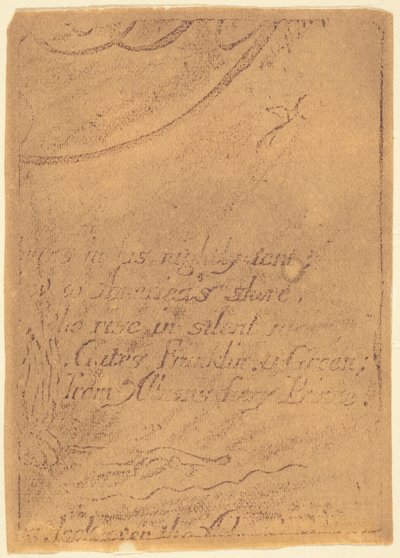 in his nightly tent
to Americas shore
who rise in silent
Gates Franklin & Green;
from Albions fiery Prince.
look over the